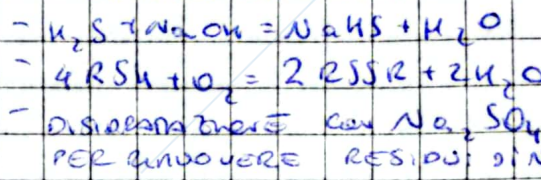 - H₂S + NaOH = NaHS + H₂O
- 4 RSH + O₂ = 2 RSSR + 2H₂O
- DISIDRATAZIONE con Na₂SO₄
PER RIMUOVERE RESIDUI DI